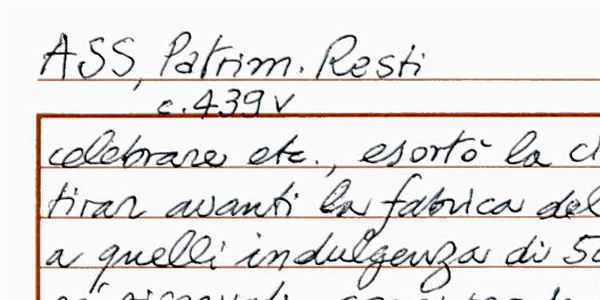 ASS, Patrim. Resti
c. 439 v
celebrare etc., esortò la
tirar avanti la fabrica del
a quelli indulgenza di